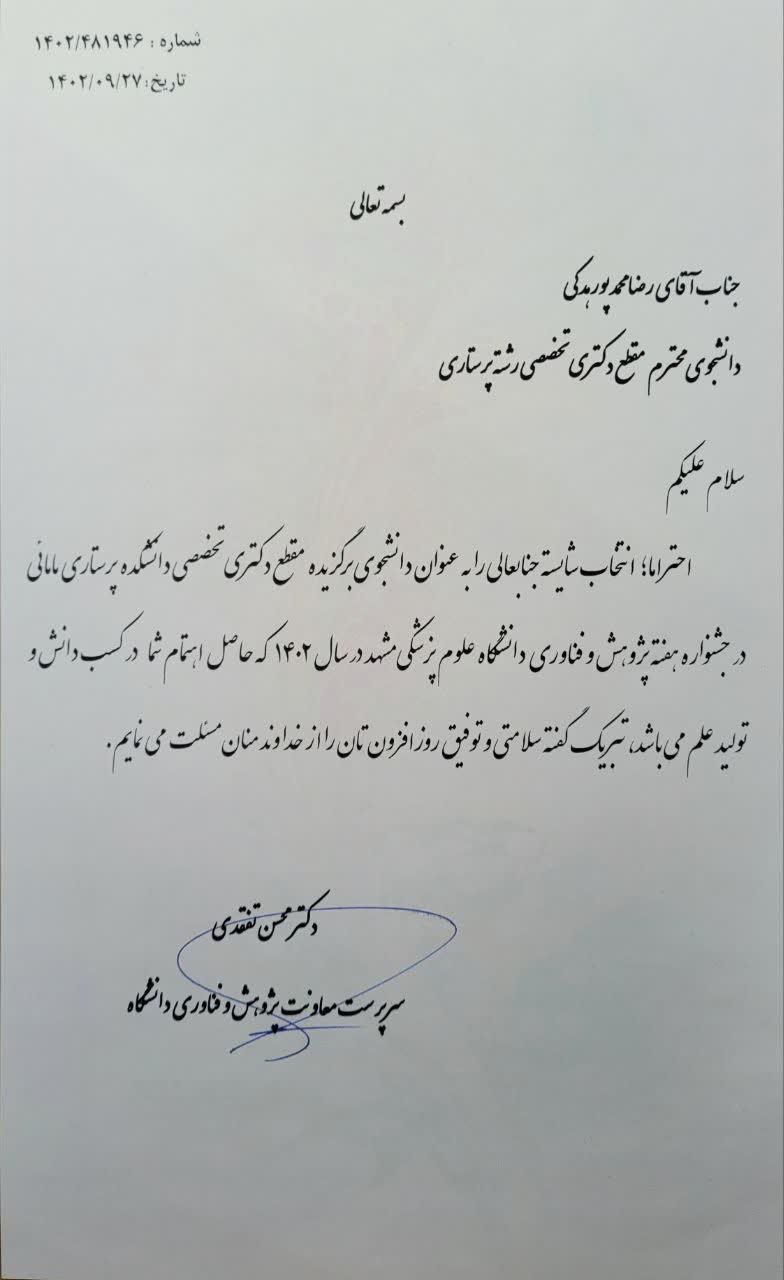 شماره : ۱۴۰۲/۴۸۱۹۴۶
تاریخ: ۱۴۰۲/۰۹/۲۷
بسمه تعالی
جناب آقای رضا محمدپور هدکی
دانشجوی محترم مقطع دکتری تخصصی رشته پرستاری
سلام علیکم
احتراما؛ انتخاب شایسته جنابعالی را به عنوان دانشجوی برگزیده مقطع دکتری تخصصی دانشکده پرستاری مامائی
در جشنواره هفته پژوهش و فناوری دانشگاه علوم پزشکی مشهد در سال ۱۴۰۲ که حاصل اهتمام شما در کسب دانش و
تولید علم می باشد، تبریک گفته سلامتی و توفیق روز افزون تان را از خداوند منان مسئلت می نمایم.
دکتر محسن تفقدی
سرپرست معاونت پژوهش و فناوری دانشگاه